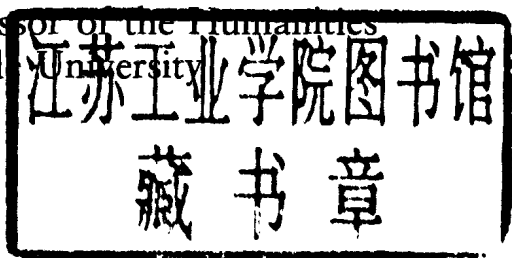 ssor of the Humanities
University
江苏工业学院图书馆
藏书章